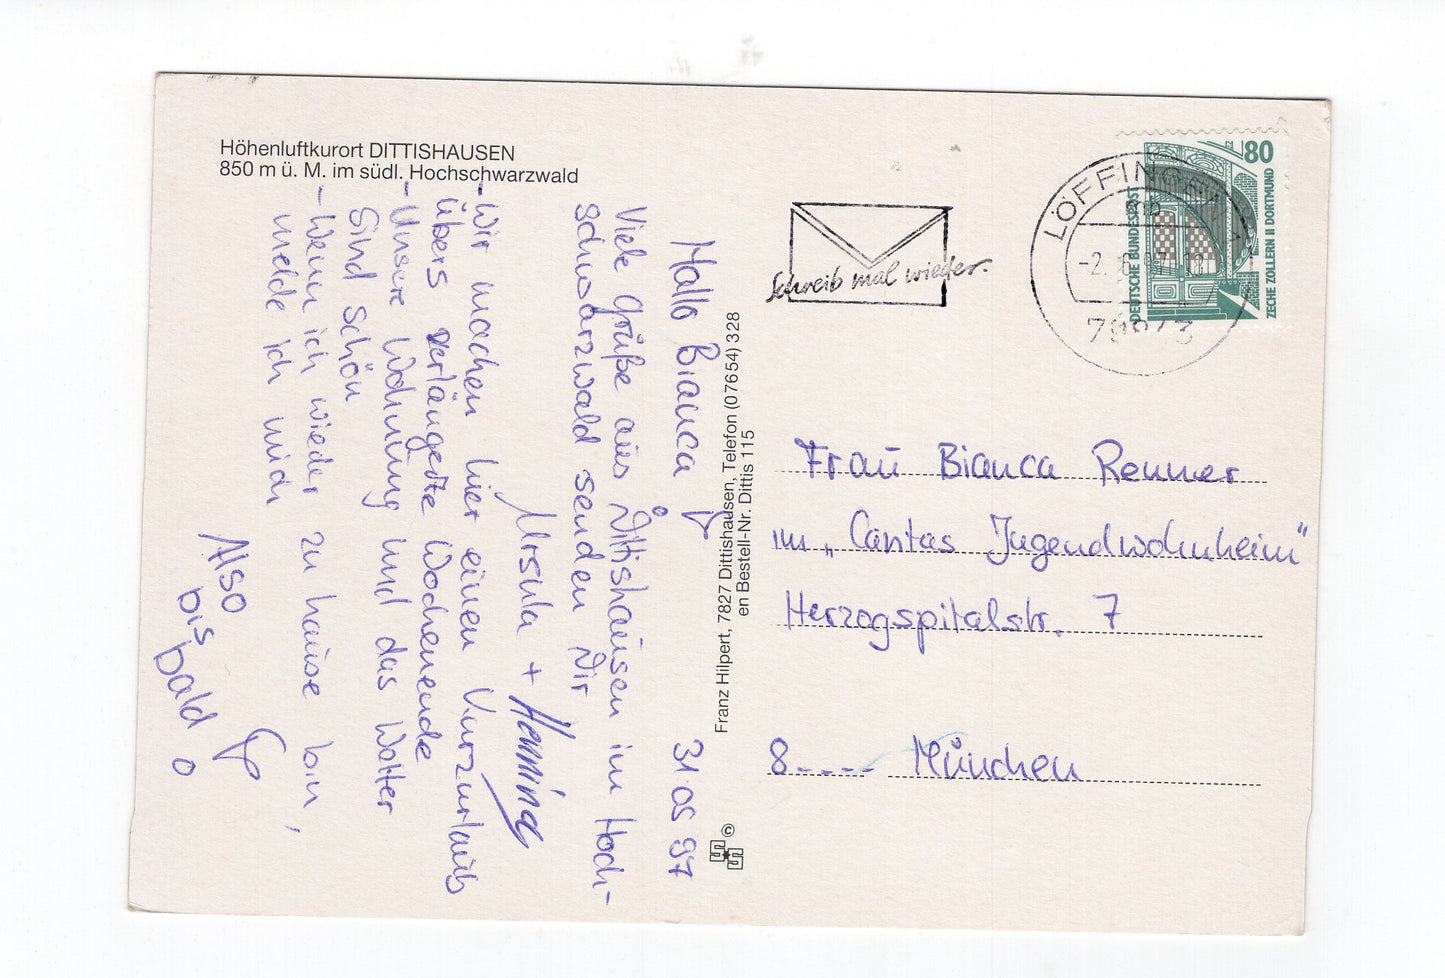 Höhenluftkurort DITTISHAUSEN
850 m ü. M. im südl. Hochschwarzwald
Hallo Bianca! 31.05.97
Viele Grüße aus Dittishausen im Hoch-
schwarzwald senden Dir
Ursula + Henning
- Wir machen hier einen Kurzurlaub
übers verlängerte Wochenende
- Unsere Wohnung und das Wetter
sind schön
- Wenn ich wieder zu hause bin,
melde ich mich
Also
bis
bald!
Franz Hilpert, 7827 Dittishausen, Telefon (07654) 328
en Bestell-Nr. Dittis 115
©
Schreib mal wieder.
LÖFFINGEN
79843
80
DEUTSCHE BUNDESPOST
ZECHE ZOLLERN II DORTMUND
Frau Bianca Renner
im „Caritas Jugendwohnheim"
Herzogspitalstr. 7
8---- München